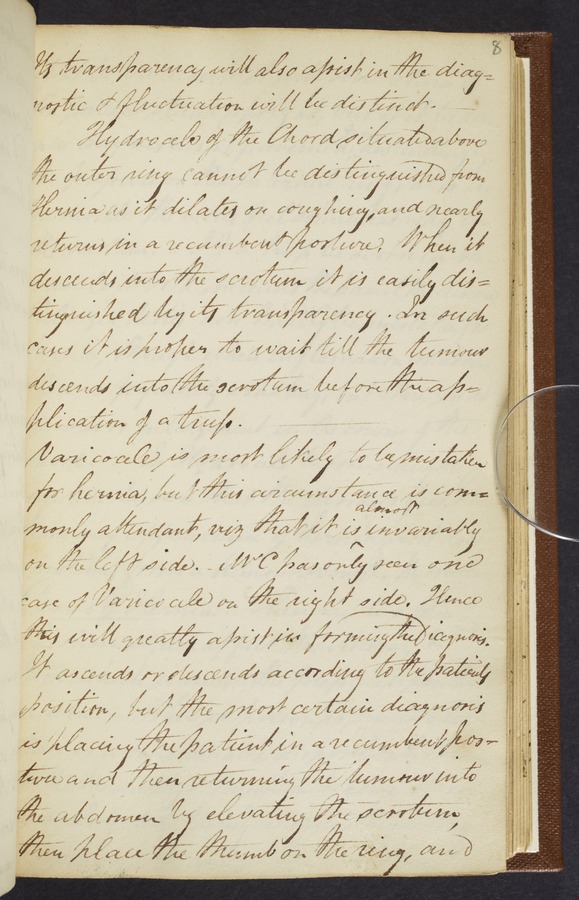 8
Its transparency will also assist in the diag=
nostic & fluctuation will be distinct.
Hydrocele of the Chord situated above
the outer ring cannot be distinguished from
Hernia as it dilates on coughing, and nearly
returns in a recumbent posture. When it
descends into the scrotum it is easily dis=
tinguished by its transparency. In such
cases it is proper to wait till the tumour
descends into the scrotum before the ap=
plication of a truss.
Varicocele is most likely to be mistaken
for hernia, but this circumstance is com=
almost
monly attendant, viz that it is invariably
on the left side. Mr C has only seen one
case of Varicocele on the right side. Hence
this will greatly assist in forming the Diagnosis.
It ascends or descends according to the patients
position, but the most certain diagnosis
is placing the patient in a recumbent pos=
ture and then returning the tumour into
the abdomen by elevating the scrotum,
then place the thumb on the ring, and